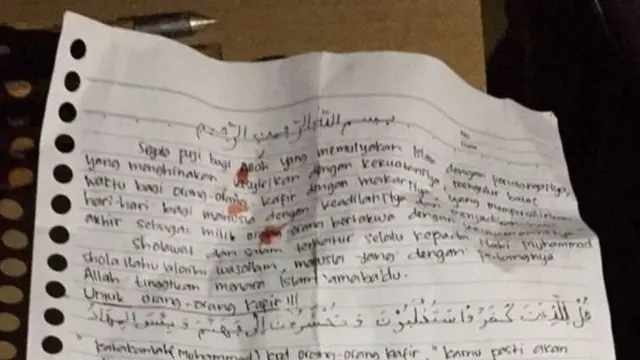 بسم الله الرحمن الرحيم
No
Date
Segala puji bagi Allah yang memulyakan Islam dengan
yang menghinakan kesyirikan dengan kekuatanNya, mengatur
waktu bagi orang-orang kafir dengan makarNya, yang
hari-hari bagi manusia dengan keadilanNya dan menjadikan
akhir sebagai milik orang-orang bertakwa dengan
Sholawat dan salam teratur selalu kepada Nabi Muhammad
shola ilahu alaihi wasollam, manusia yang dengan pedangnya
Allah tinggikan menara Islam. amaba'du.
Untuk orang-orang kafir !!!
قُل لِّلَّذِينَ كَفَرُوا سَتُغْلَبُونَ وَتُحْشَرُونَ إِلَىٰ جَهَنَّمَ وَبِئْسَ الْمِهَادُ
" Katakanlah (Muhammad) kpd orang-orang kafir " kamu pasti akan